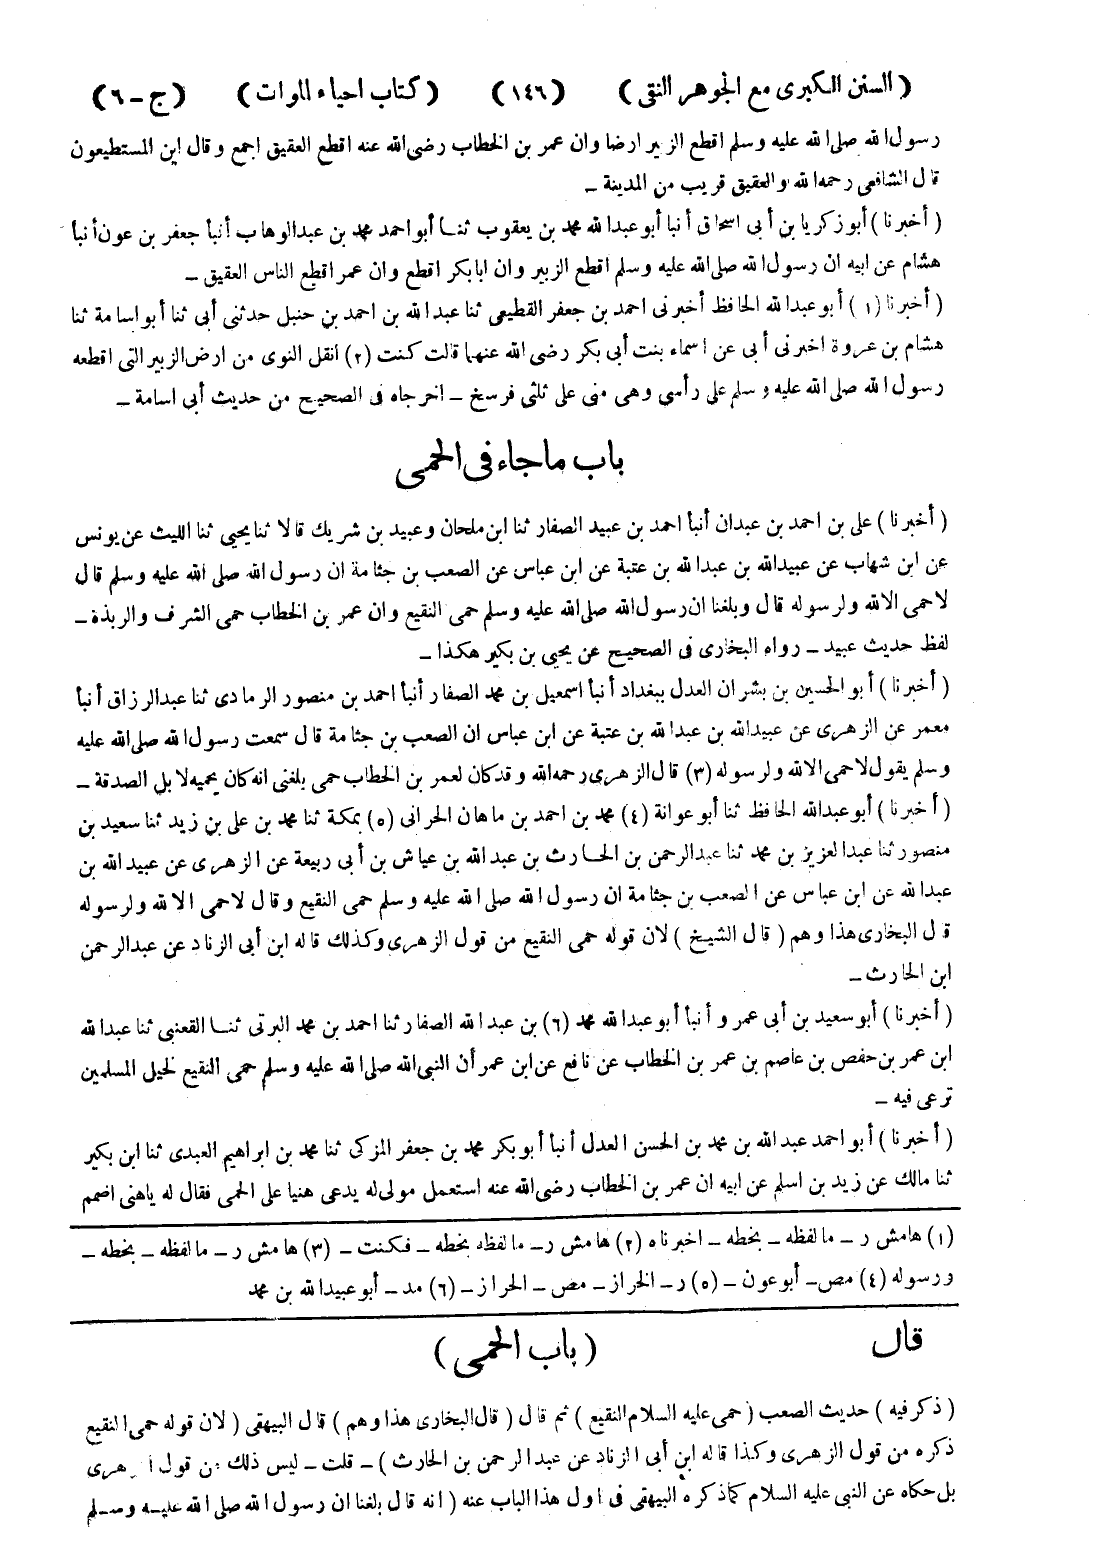 ( السنن الكبرى مع الجوهر النقى ) ( ١٤٦ ) ( كتاب احياء الموات ) ( ج - ٦ )
رسول الله صلى الله عليه وسلم اقطع الزبير ارضا وان عمر بن الخطاب رضى الله عنه اقطع العقيق اجمع وقال اين المستطيعون
قال الشافعى رحمه الله والعقيق قريب من المدينة -
( أخبرنا ) أبو زكريا بن أبى اسحاق أنبأ أبو عبد الله محمد بن يعقوب ثنا أبو احمد محمد بن عبد الوهاب أنبأ جعفر بن عون أنبأ
هشام عن ابيه ان رسول الله صلى الله عليه وسلم اقطع الزبير وان ابا بكر اقطع وان عمر اقطع الناس العقيق -
( أخبرنا (١) ) أبو عبد الله الحافظ أخبرنى احمد بن جعفر القطيعى ثنا عبد الله بن احمد بن حنبل حدثنى أبى ثنا أبو اسامة ثنا
هشام بن عروة اخبرنى أبى عن اسماء بنت أبى بكر رضى الله عنهما قالت كنت (٢) انقل النوى من ارض الزبير التى اقطعه
رسول الله صلى الله عليه وسلم على رأسى وهى منى على ثلثى فرسخ - اخرجاه فى الصحيح من حديث أبى اسامة -
باب ما جاء فى الحمى
( أخبرنا ) على بن احمد بن عبدان أنبأ احمد بن عبيد الصفار ثنا ابن ملحان وعبيد بن شريك قالا ثنا يحيى ثنا الليث عن يونس
عن ابن شهاب عن عبيد الله بن عبد الله بن عتبة عن ابن عباس عن الصعب بن جثامة ان رسول الله صلى الله عليه وسلم قال
لا حمى الا لله ولرسوله قال وبلغنا ان رسول الله صلى الله عليه وسلم حمى النقيع وان عمر بن الخطاب حمى الشرف والربذة -
لفظ حديث عبيد - رواه البخارى فى الصحيح عن يحيى بن بكير هكذا -
( أخبرنا ) أبو الحسين بن بشران العدل ببغداد أنبأ اسمعيل بن محمد الصفار أنبأ احمد بن منصور الرمادى ثنا عبد الرزاق أنبأ
معمر عن الزهرى عن عبيد الله بن عبد الله بن عتبة عن ابن عباس ان الصعب بن جثامة قال سمعت رسول الله صلى الله عليه
وسلم يقول لا حمى الا لله ولرسوله (٣) قال الزهرى رحمه الله وقد كان لعمر بن الخطاب حمى بلغنى انه كان يحميه لابل الصدقة -
( أخبرنا ) أبو عبد الله الحافظ ثنا أبو عوانة (٤) محمد بن احمد بن ماهان الحرانى (٥) بمكة ثنا محمد بن على بن زيد ثنا سعيد بن
منصور ثنا عبد العزيز بن محمد ثنا عبد الرحمن بن الحارث بن عبد الله بن عياش بن أبى ربيعة عن الزهرى عن عبيد الله بن
عبد الله عن ابن عباس عن الصعب بن جثامة ان رسول الله صلى الله عليه وسلم حمى النقيع وقال لا حمى الا لله ولرسوله
قال البخارى هذا وهم ( قال الشيخ ) لان قوله حمى النقيع من قول الزهرى وكذلك قاله ابن أبى الزناد عن عبد الرحمن
ابن الحارث -
( أخبرنا ) أبو سعيد بن أبى عمرو أنبأ أبو عبد الله محمد (٦) بن عبد الله الصفار ثنا احمد بن محمد البرتى ثنا القعنبى ثنا عبد الله
ابن عمر بن حفص بن عاصم بن عمر بن الخطاب عن نافع عن ابن عمر أن النبى الله صلى الله عليه وسلم حمى النقيع لخيل المسلمين
ترعى فيه -
( أخبرنا ) أبو احمد عبد الله بن محمد بن الحسن العدل أنبأ أبو بكر محمد بن جعفر المزكى ثنا محمد بن ابراهيم العبدى ثنا ابن بكير
ثنا مالك عن زيد بن اسلم عن ابيه ان عمر بن الخطاب رضى الله عنه استعمل مولى له يدعى هنيا على الحمى فقال له يا هنى اضمم
(١) هامش ر - ما لفظه - بخطه - اخبرناه (٢) هامش ر - ما لفظه بخطه - فكنت - (٣) هامش ر - ما لفظه - بخطه -
ورسوله (٤) مص - أبو عون - (٥) ر - الخراز - مص - الحراز - (٦) مد - أبو عبيد الله بن محمد
قال ( باب الحمى )
( ذكر فيه ) حديث الصعب ( حمى عليه السلام النقيع ) ثم قال ( قال البخارى هذا وهم ) قال البيهقى ( لان قوله حمى النقيع
ذكره من قول الزهرى وكذا قاله ابن أبى الزناد عن عبد الرحمن بن الحارث ) - قلت - ليس ذلك من قول الزهرى
بل حكاه عن النبى عليه السلام كما ذكره البيهقى فى اول هذا الباب عنه ( انه قال بلغنا ان رسول الله صلى الله عليه وسلم